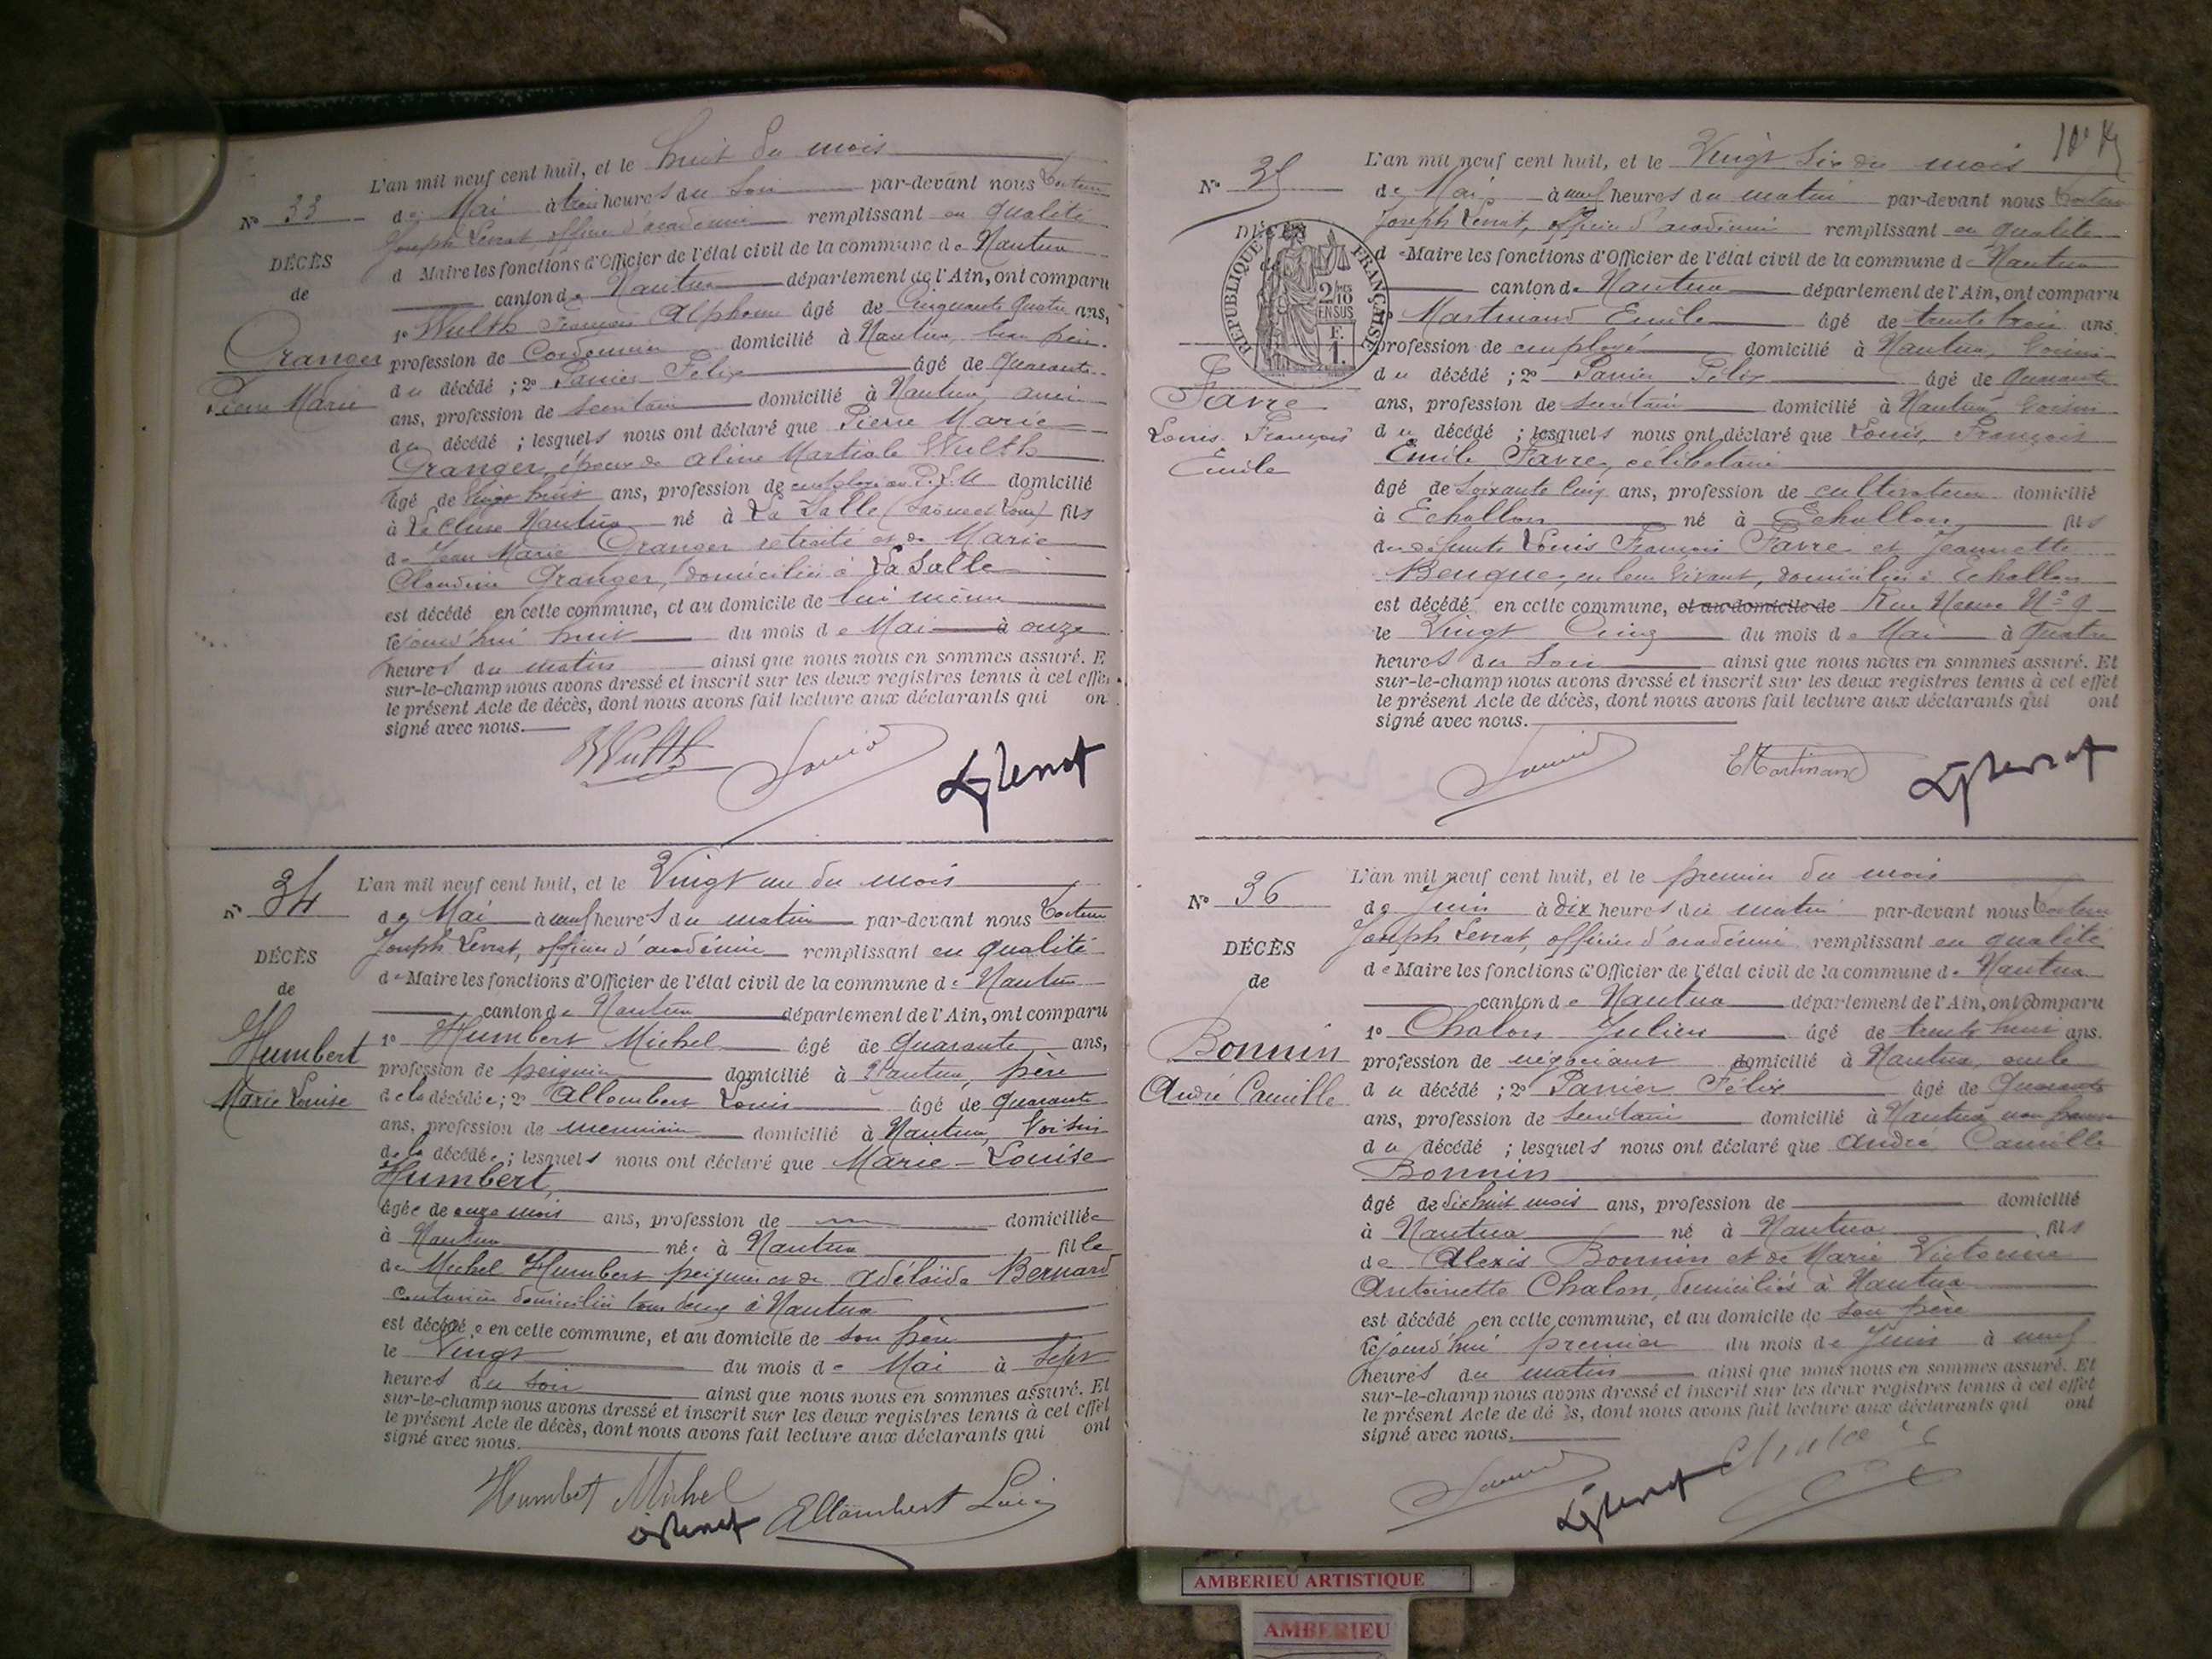 L'an mil neuf cent huit, et le huit du mois
N° 33
de Mai à trois heures du soir par-devant nous Docteur
Joseph Levrat officier d'académie remplissant en qualité
DÉCÈS
d Maire les fonctions d'Officier de l'état civil de la commune de Nantua
de
canton de Nantua département de l'Ain, ont comparu
1° Wulth François Alphonse âgé de Cinquante quatre ans,
Granger
profession de Cordonnier domicilié à Nantua, beau père
Pierre Marie
du décédé ; 2° Panier Félix âgé de quarante
ans, profession de secrétaire domicilié à Nantua, ami
du décédé ; lesquels nous ont déclaré que Pierre Marie
Granger, époux de Aline Martiale Wulth
âgé de vingt huit ans, profession de employé au P.L.M domicilié
à La Cluse Nantua né à La Salle (Saône et Loire) fils
de Jean Marie Granger retraité et de Marie
Claudine Granger, domiciliés à La Salle
est décédé en cette commune, et au domicile de lui même
cejourd'hui huit du mois de Mai à onze
heures du matin ainsi que nous nous en sommes assuré. E
sur-le-champ nous avons dressé et inscrit sur les deux registres tenus à cet effet
le présent Acte de décès, dont nous avons fait lecture aux déclarants qui on
signé avec nous.
Wulth Panier Levrat
L'an mil neuf cent huit, et le Vingt un du mois
N° 34
de Mai à neuf heures du matin par-devant nous Docteur
Joseph Levrat, officier d'académie remplissant en qualité
DÉCÈS
de Maire les fonctions d'Officier de l'état civil de la commune de Nantua
de
canton de Nantua département de l'Ain, ont comparu
Humbert
1° Humbert Michel âgé de Quarante ans,
profession de peignier domicilié à Nantua, père
Marie Louise
de la décédée; 2° Allombert Louis âgé de quarante
ans, profession de menuisier domicilié à Nantua, Voisin
de la décédée; lesquels nous ont déclaré que Marie-Louise
Humbert,
âgée de onze mois ans, profession de domiciliée
à Nantua née à Nantua fille
de Michel Humbert peignier et de Adélaïde Bernard
couturière domiciliés tous deux à Nantua
est décédée en cette commune, et au domicile de son père
le Vingt du mois de Mai à Sept
heures du soir ainsi que nous nous en sommes assuré. Et
sur-le-champ nous avons dressé et inscrit sur les deux registres tenus à cet effet
le présent Acte de décès, dont nous avons fait lecture aux déclarants qui ont
signé avec nous.
Humbert Michel
Levrat Allombert Louis
L'an mil neuf cent huit, et le Vingt six du mois
N° 35
de Mai à neuf heures du matin par-devant nous Docteur
Joseph Levrat, officier d'académie remplissant en qualité
DÉCÈS
RÉPUBLIQUE FRANÇAISE
2/10 EN SUS
F. 1.
de Maire les fonctions d'Officier de l'état civil de la commune de Nantua
canton de Nantua département de l'Ain, ont comparu
Martinand Emile âgé de trente trois ans
profession de employé domicilié à Nantua, Voisin
du décédé ; 2° Panier Félix âgé de quarante
Favre
ans, profession de secrétaire domicilié à Nantua, Voisin
Louis François
du décédé ; lesquels nous ont déclaré que Louis, François
Emile
Emile Favre, célibataire
âgé de Soixante Cinq ans, profession de cultivateur domicilié
à Echallon né à Echallon fils
de défunts Louis François Favre et Jeannette
Benque, en leur vivant, domiciliés à Echallon
est décédé en cette commune, et au domicile de Rue Neuve N° 9
le Vingt Cinq du mois de Mai à quatre
heures du Soir ainsi que nous nous en sommes assuré. Et
sur-le-champ nous avons dressé et inscrit sur les deux registres tenus à cet effet
le présent Acte de décès, dont nous avons fait lecture aux déclarants qui ont
signé avec nous.
Panier E Martinand Levrat
L'an mil neuf cent huit, et le premier du mois
N° 36
de Juin à dix heures du matin par-devant nous Docteur
Joseph Levrat, officier d'académie remplissant en qualité
DÉCÈS
de Maire les fonctions d'Officier de l'état civil de la commune de Nantua
de
canton de Nantua département de l'Ain, ont comparu
1° Chalon Julien âgé de trente huit ans.
Bonnin
profession de négociant domicilié à Nantua, oncle
André Camille
du décédé ; 2° Panier Félix âgé de Quarante
ans, profession de secrétaire domicilié à Nantua, non parent
du décédé ; lesquels nous ont déclaré que André Camille
Bonnin
âgé de dix huit mois ans, profession de domicilié
à Nantua né à Nantua fils
de Alexis Bonnin et de Marie Victorine
Antoinette Chalon, domiciliés à Nantua
est décédé en cette commune, et au domicile de son père
cejourd'hui premier du mois de Juin à neuf
heures du matin ainsi que nous nous en sommes assuré. Et
sur-le-champ nous avons dressé et inscrit sur les deux registres tenus à cet effet
le présent Acte de décès, dont nous avons fait lecture aux déclarants qui ont
signé avec nous.
Panier Levrat Chalon
AMBERIEU ARTISTIQUE
AMBERIEU